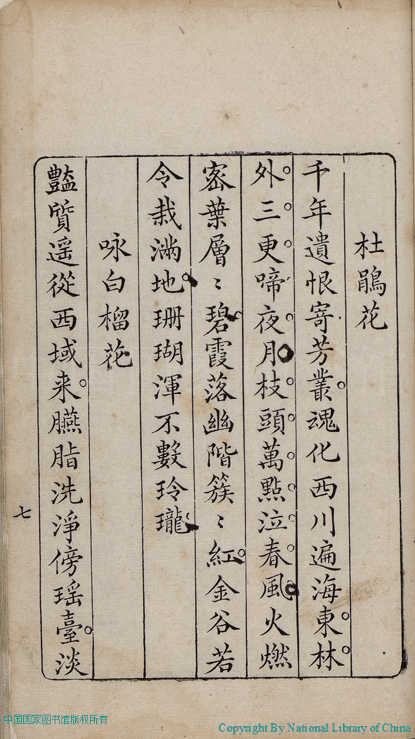 杜鵑花
千年遺恨寄芳叢魂化西川遍海東林
外三更啼夜月枝頭萬點泣春風火燃
密葉層〻碧霞落幽階簇〻紅金谷若
令栽滿地珊瑚渾不數玲瓏
咏白榴花
豔質遥從西域来臙脂洗淨傍瑶臺淡
七
中国国家图书馆版权所有
Copyright By National Library of China